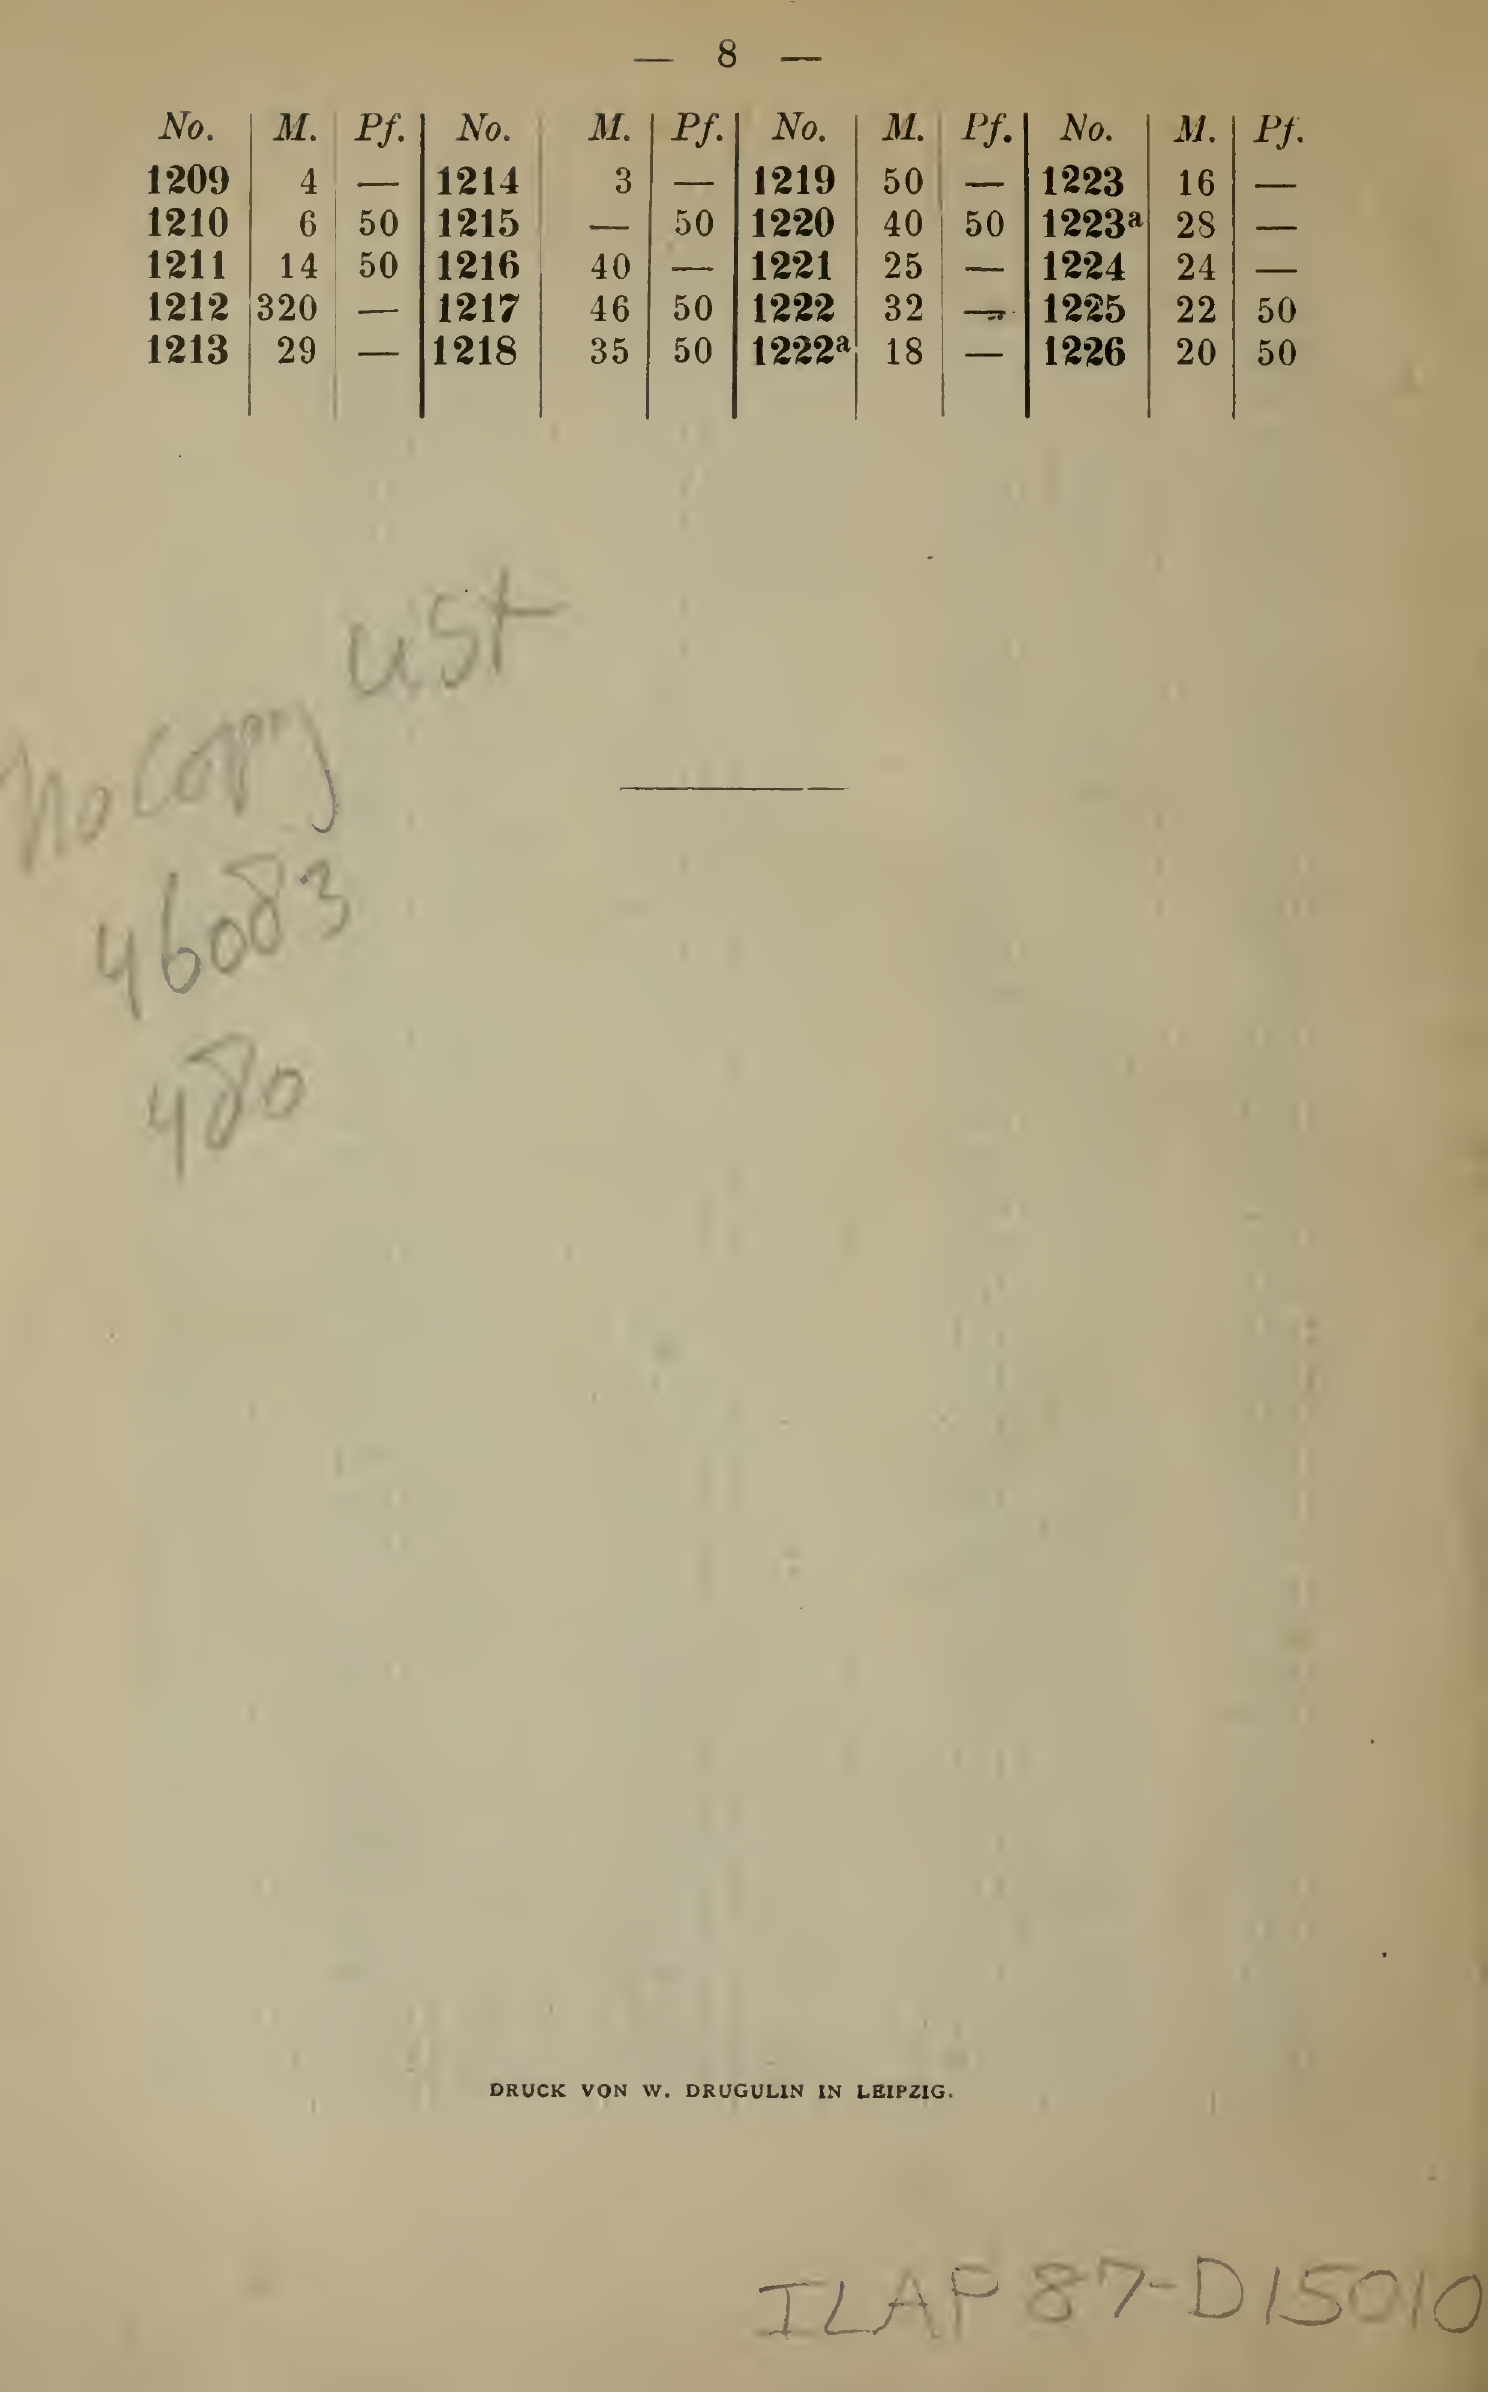 — 8 —
No. M. Pf. No. M. Pf. No. M. Pf. No. M. Pf.
1209 4 — 1214 3 — 1219 50 — 1223 16 —
1210 6 50 1215 — 50 1220 40 50 1223a 28 —
1211 14 50 1216 40 — 1221 25 — 1224 24 —
1212 320 — 1217 46 50 1222 32 — 1225 22 50
1213 29 — 1218 35 50 1222a 18 — 1226 20 50
no copy
46083
480
DRUCK VON W. DRUGULIN IN LEIPZIG.
ILAP 87-D15010